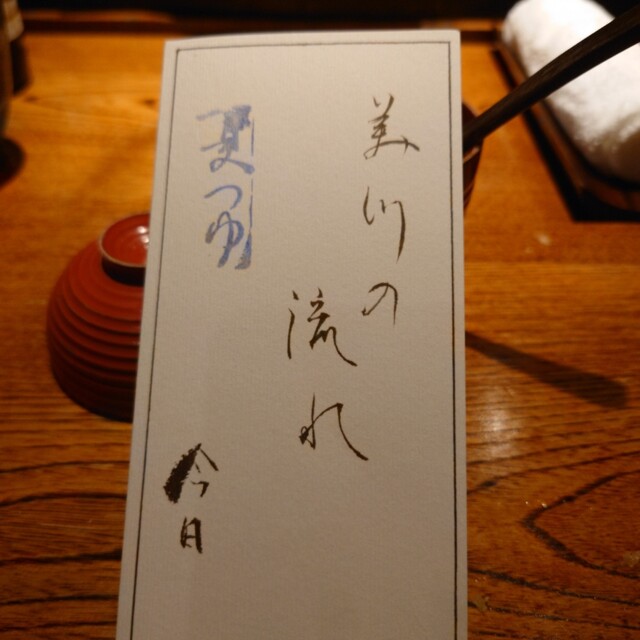 美川の
流れ
夏つゆ
今日